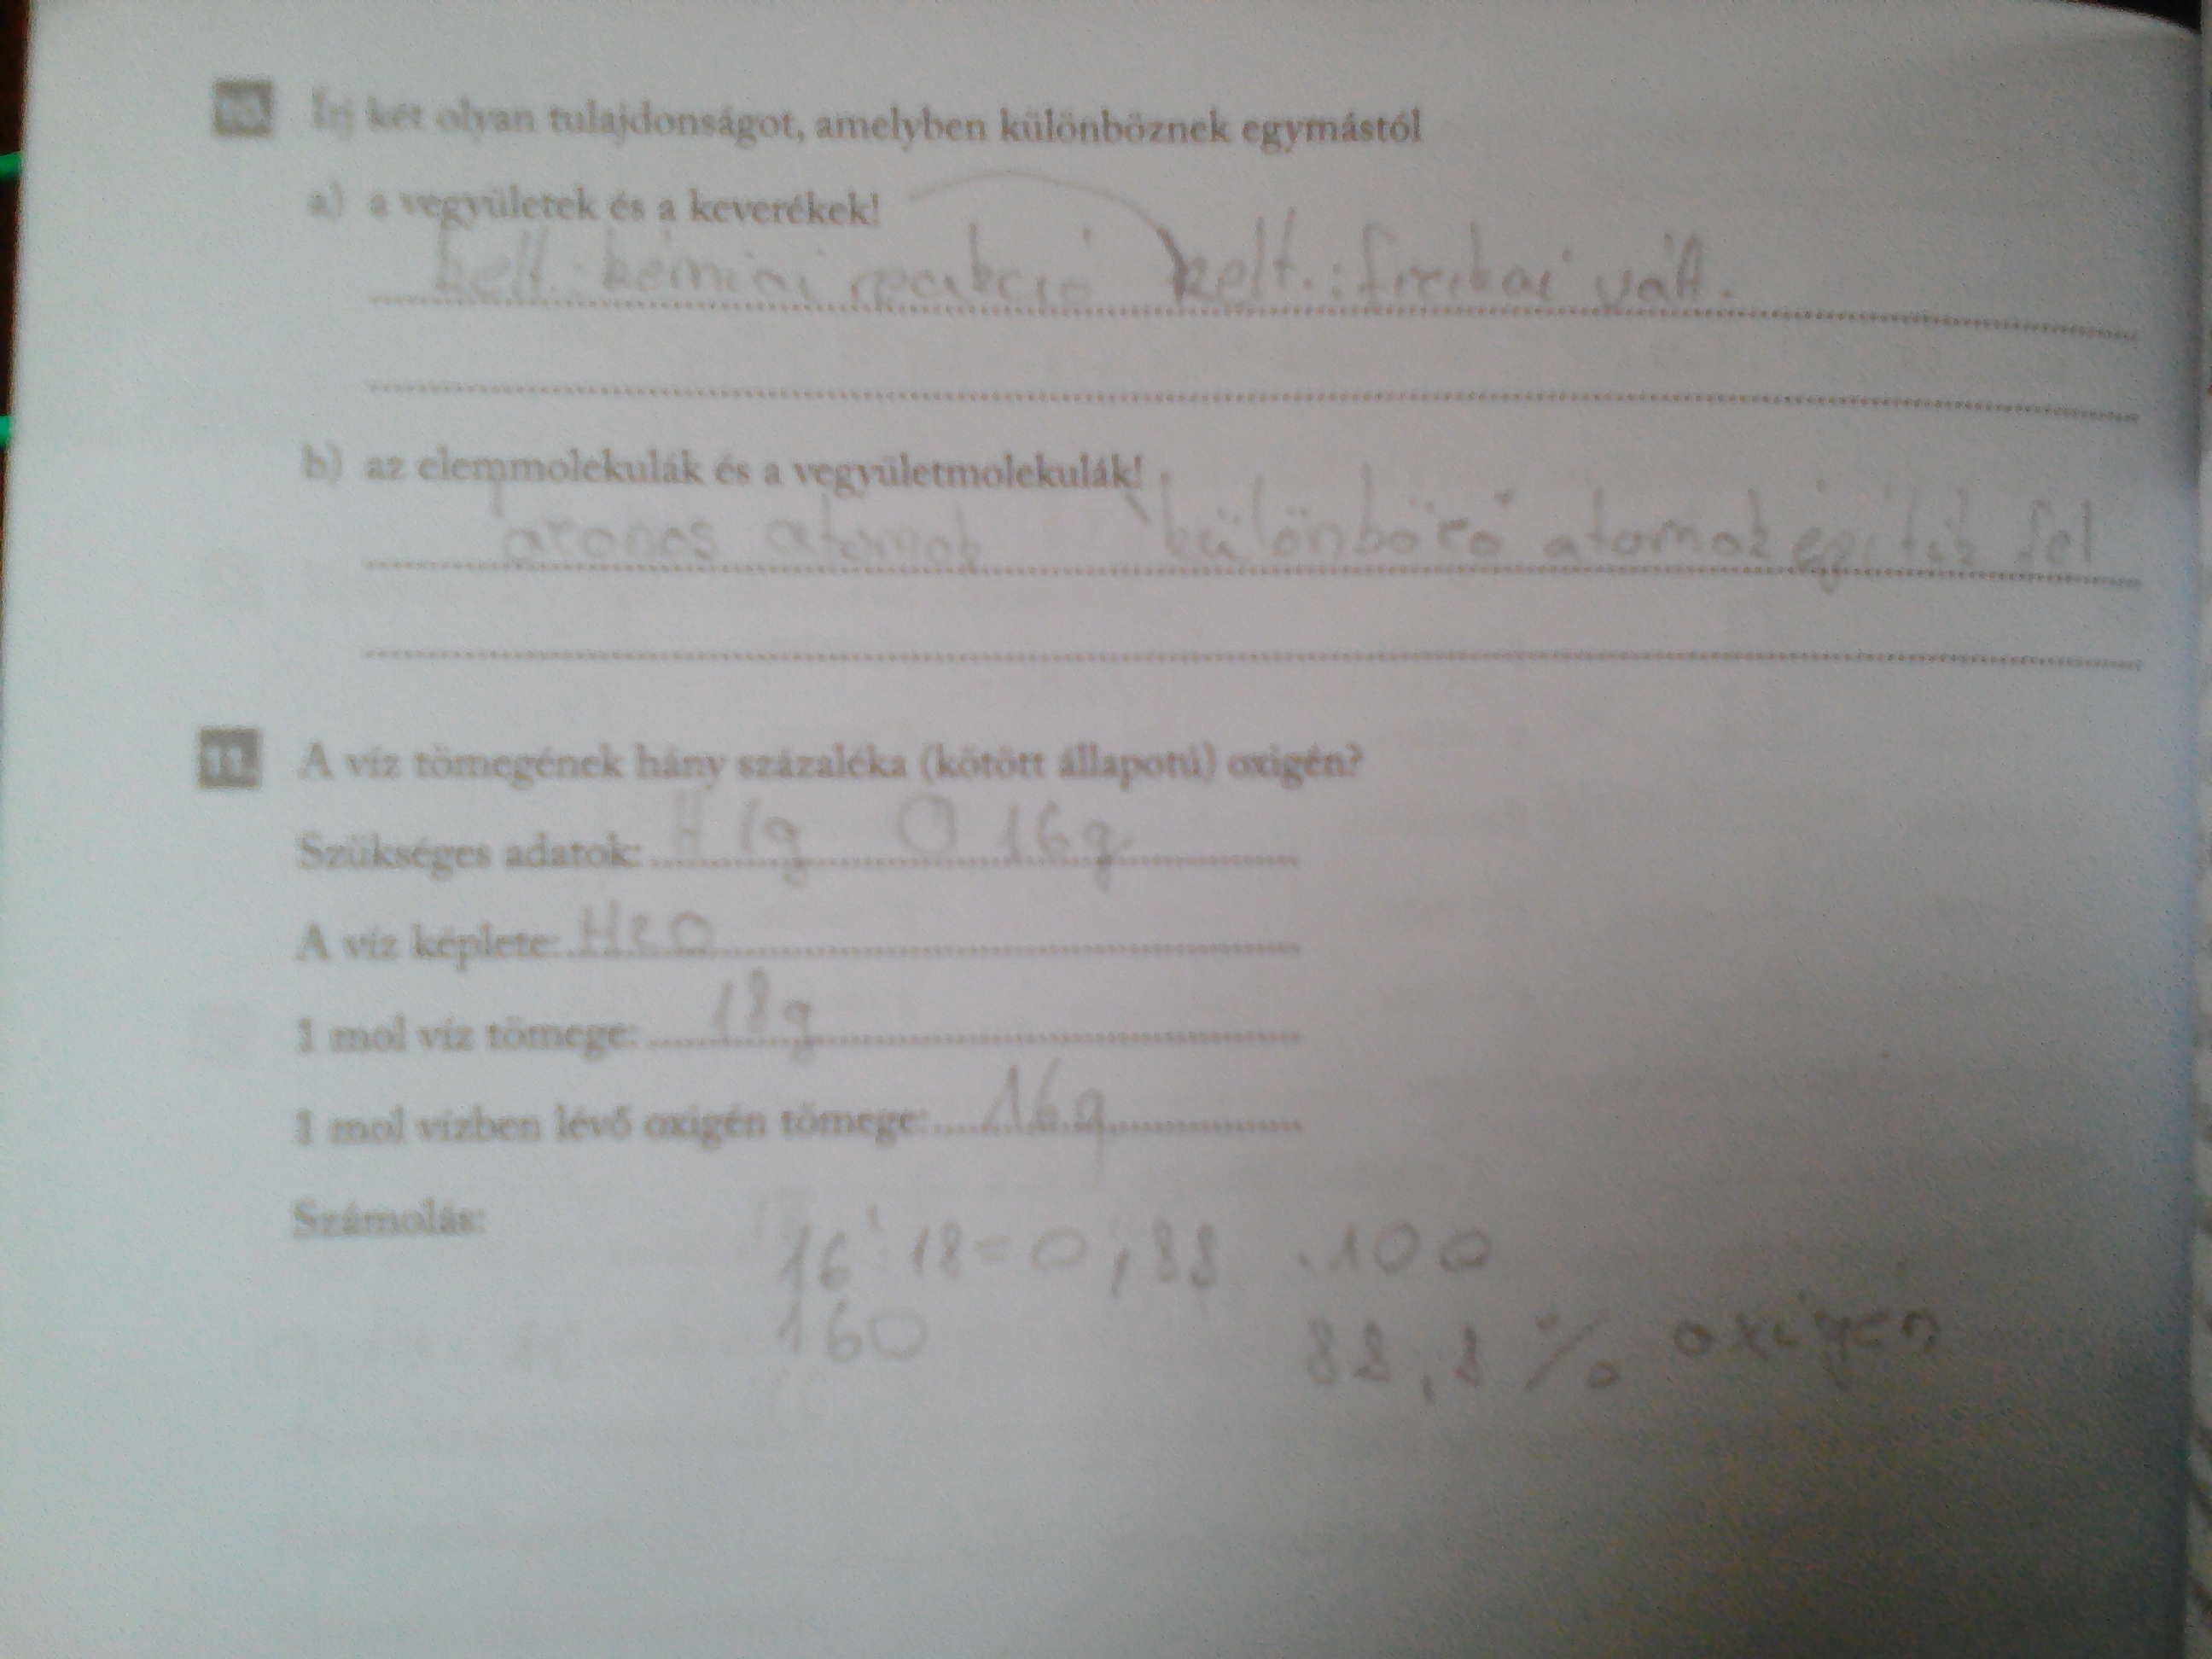 10. Írj két olyan tulajdonságot, amelyben különböznek egymástól
a) a vegyületek és a keverékek!
kelt.: kémiai reakció kelt.: fizikai vált.
b) az elemmolekulák és a vegyületmolekulák!
azonos atomok különböző atomok építik fel
11. A víz tömegének hány százaléka (kötött állapotú) oxigén?
Szükséges adatok: H 1g O 16g
A víz képlete: H2O
1 mol víz tömege: 18g
1 mol vízben lévő oxigén tömege: 16g
Számolás:
16:18=0,88 .100
160
88,8% oxigén